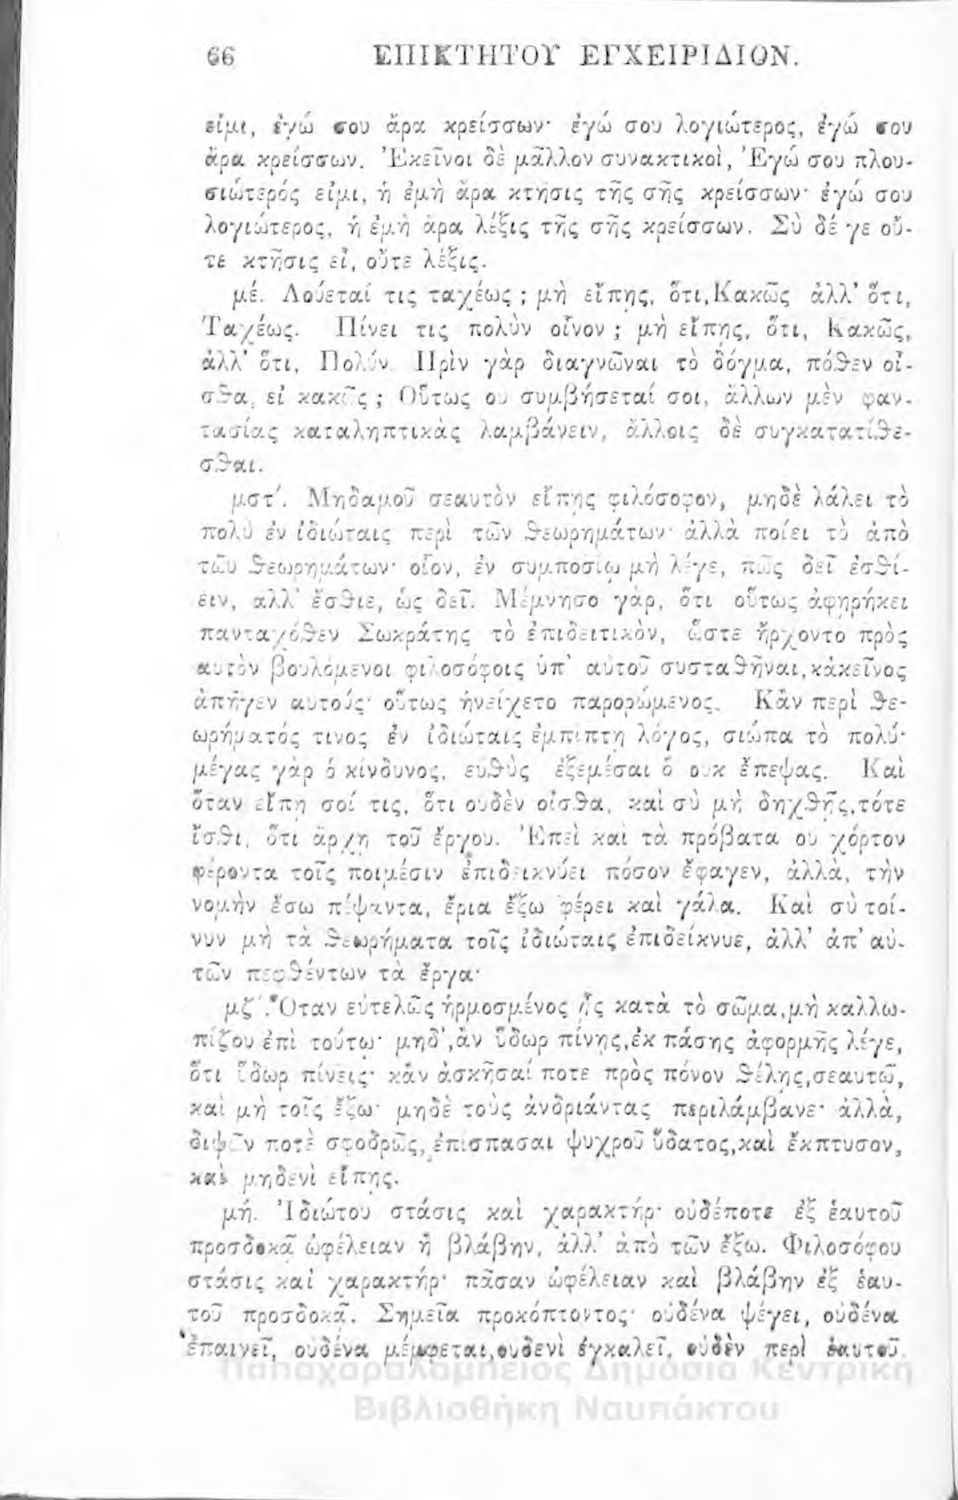 66 ΕΠΙΚΤΗΤΟΥ ΕΓΧΕΙΡΙΔΙΟΝ.
εἰμι, ἐγώ σου ἄρα κρείσσων· ἐγώ σου λογιώτερος, ἐγώ σου
ἄρα κρείσσων. Ἐκεῖνοι δὲ μᾶλλον συνακτικοὶ, Ἐγώ σου πλου-
σιώτερός εἰμι, ἡ ἐμὴ ἄρα κτῆσις τῆς σῆς κρείσσων· ἐγώ σου
λογιώτερος, ἡ ἐμὴ ἄρα λέξις τῆς σῆς κρείσσων. Σὺ δέ γε οὔ-
τε κτῆσις εἶ, οὔτε λέξις.
μέ. Λούεταί τις ταχέως ; μὴ εἴπῃς, ὅτι, Κακῶς ἀλλ' ὅτι,
Ταχέως. Πίνει τις πολὺν οἶνον ; μὴ εἴπῃς, ὅτι, Κακῶς,
ἀλλ' ὅτι, Πολύν. Πρὶν γὰρ διαγνῶναι τὸ δόγμα, πόθεν οἶ-
σθα, εἰ κακῶς ; Οὕτως οὐ συμβήσεταί σοι, ἄλλων μὲν φαν-
τασίας καταληπτικὰς λαμβάνειν, ἄλλοις δὲ συγκατατίθε-
σθαι.
μστ'. Μηδαμοῦ σεαυτὸν εἴπῃς φιλόσοφον, μηδὲ λάλει τὸ
πολὺ ἐν ἰδιώταις περὶ τῶν θεωρημάτων· ἀλλὰ ποίει τὸ ἀπὸ
τῶν θεωρημάτων· οἷον, ἐν συμποσίῳ μὴ λέγε, πῶς δεῖ ἐσθί-
ειν, ἀλλ' ἔσθιε, ὡς δεῖ. Μέμνησο γὰρ, ὅτι οὕτως ἀφῃρήκει
πανταχόθεν Σωκράτης τὸ ἐπιδειτικὸν, ὥστε ἤρχοντο πρὸς
αὐτὸν βουλόμενοι φιλοσόφοις ὑπ' αὐτοῦ συσταθῆναι, κἀκεῖνος
ἀπῆγεν αὐτούς· οὕτως ἠνείχετο παρορώμενος. Κἂν περὶ θε-
ωρήματός τινος ἐν ἰδιώταις ἐμπίπτῃ λόγος, σιώπα τὸ πολύ·
μέγας γὰρ ὁ κίνδυνος, εὐθὺς ἐξεμέσαι ὃ οὐκ ἔπεψας. Καὶ
ὅταν εἴπῃ σοί τις, ὅτι οὐδὲν οἶσθα, καὶ σὺ μὴ δηχθῇς, τότε
ἴσθι, ὅτι ἄρχῃ τοῦ ἔργου. Ἐπεὶ καὶ τὰ πρόβατα οὐ χόρτον
φέροντα τοῖς ποιμέσιν ἐπιδεικνύει πόσον ἔφαγεν, ἀλλὰ, τὴν
νομὴν ἔσω πέψαντα, ἔρια ἔξω φέρει καὶ γάλα. Καὶ σὺ τοί-
νυν μὴ τὰ θεωρήματα τοῖς ἰδιώταις ἐπιδείκνυε, ἀλλ' ἀπ' αὐ-
τῶν πεφθέντων τὰ ἔργα·
μζ'. Ὅταν εὐτελῶς ἡρμοσμένος ᾖς κατὰ τὸ σῶμα, μὴ καλλω-
πίζου ἐπὶ τούτῳ· μηδ', ἂν ὕδωρ πίνῃς, ἐκ πάσης ἀφορμῆς λέγε,
ὅτι ὕδωρ πίνεις· κἂν ἀσκῆσαί ποτε πρὸς πόνον θέλῃς, σεαυτῷ,
καὶ μὴ τοῖς ἔξω· μηδὲ τοὺς ἀνδριάντας περιλάμβανε· ἀλλὰ,
διψῶν ποτὲ σφοδρῶς, ἐπίσπασαι ψυχροῦ ὕδατος, καὶ ἔκπτυσον,
καὶ μηδενὶ εἴπῃς.
μή. Ἰδιώτου στάσις καὶ χαρακτήρ· οὐδέποτε ἐξ ἑαυτοῦ
προσδοκᾷ ὠφέλειαν ἢ βλάβην, ἀλλ' ἀπὸ τῶν ἔξω. Φιλοσόφου
στάσις καὶ χαρακτήρ· πᾶσαν ὠφέλειαν καὶ βλάβην ἐξ ἑαυ-
τοῦ προσδοκᾷ. Σημεῖα προκόπτοντος· οὐδένα ψέγει, οὐδένα
ἐπαινεῖ, οὐδένα μέμφεται, οὐδενὶ ἐγκαλεῖ, οὐδὲν περὶ ἑαυτοῦ
Παπαχαραλάμπειος Δημόσια Κεντρική
Βιβλιοθήκη Ναυπάκτου